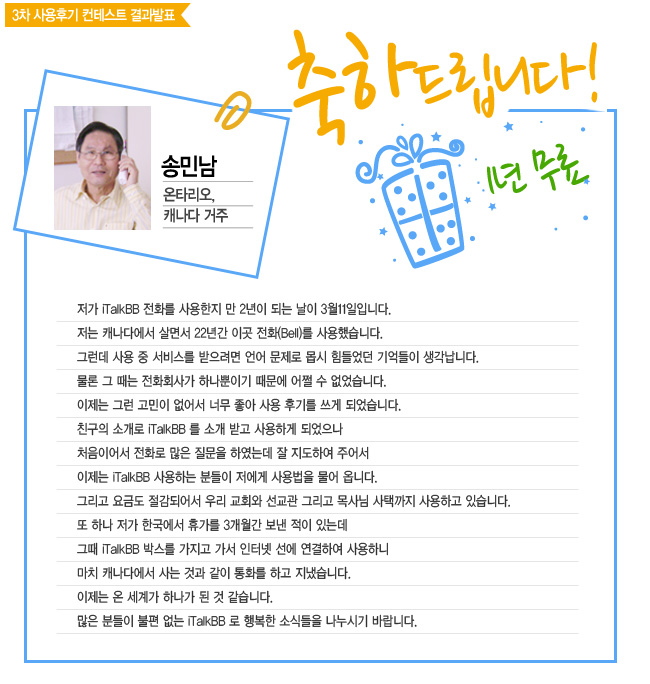 3차 사용후기 컨테스트 결과발표
축하드립니다!
1년 무료
송민남
온타리오,
캐나다 거주
저가 iTalkBB 전화를 사용한지 만 2년이 되는 날이 3월11일입니다.
저는 캐나다에서 살면서 22년간 이곳 전화(Bell)를 사용했습니다.
그런데 사용 중 서비스를 받으려면 언어 문제로 몹시 힘들었던 기억들이 생각납니다.
물론 그 때는 전화회사가 하나뿐이기 때문에 어쩔 수 없었습니다.
이제는 그런 고민이 없어서 너무 좋아 사용 후기를 쓰게 되었습니다.
친구의 소개로 iTalkBB 를 소개 받고 사용하게 되었으나
처음이어서 전화로 많은 질문을 하였는데 잘 지도하여 주어서
이제는 iTalkBB 사용하는 분들이 저에게 사용법을 물어 옵니다.
그리고 요금도 절감되어서 우리 교회와 선교관 그리고 목사님 사택까지 사용하고 있습니다.
또 하나 저가 한국에서 휴가를 3개월간 보낸 적이 있는데
그때 iTalkBB 박스를 가지고 가서 인터넷 선에 연결하여 사용하니
마치 캐나다에서 사는 것과 같이 통화를 하고 지냈습니다.
이제는 온 세계가 하나가 된 것 같습니다.
많은 분들이 불편 없는 iTalkBB 로 행복한 소식들을 나누시기 바랍니다.